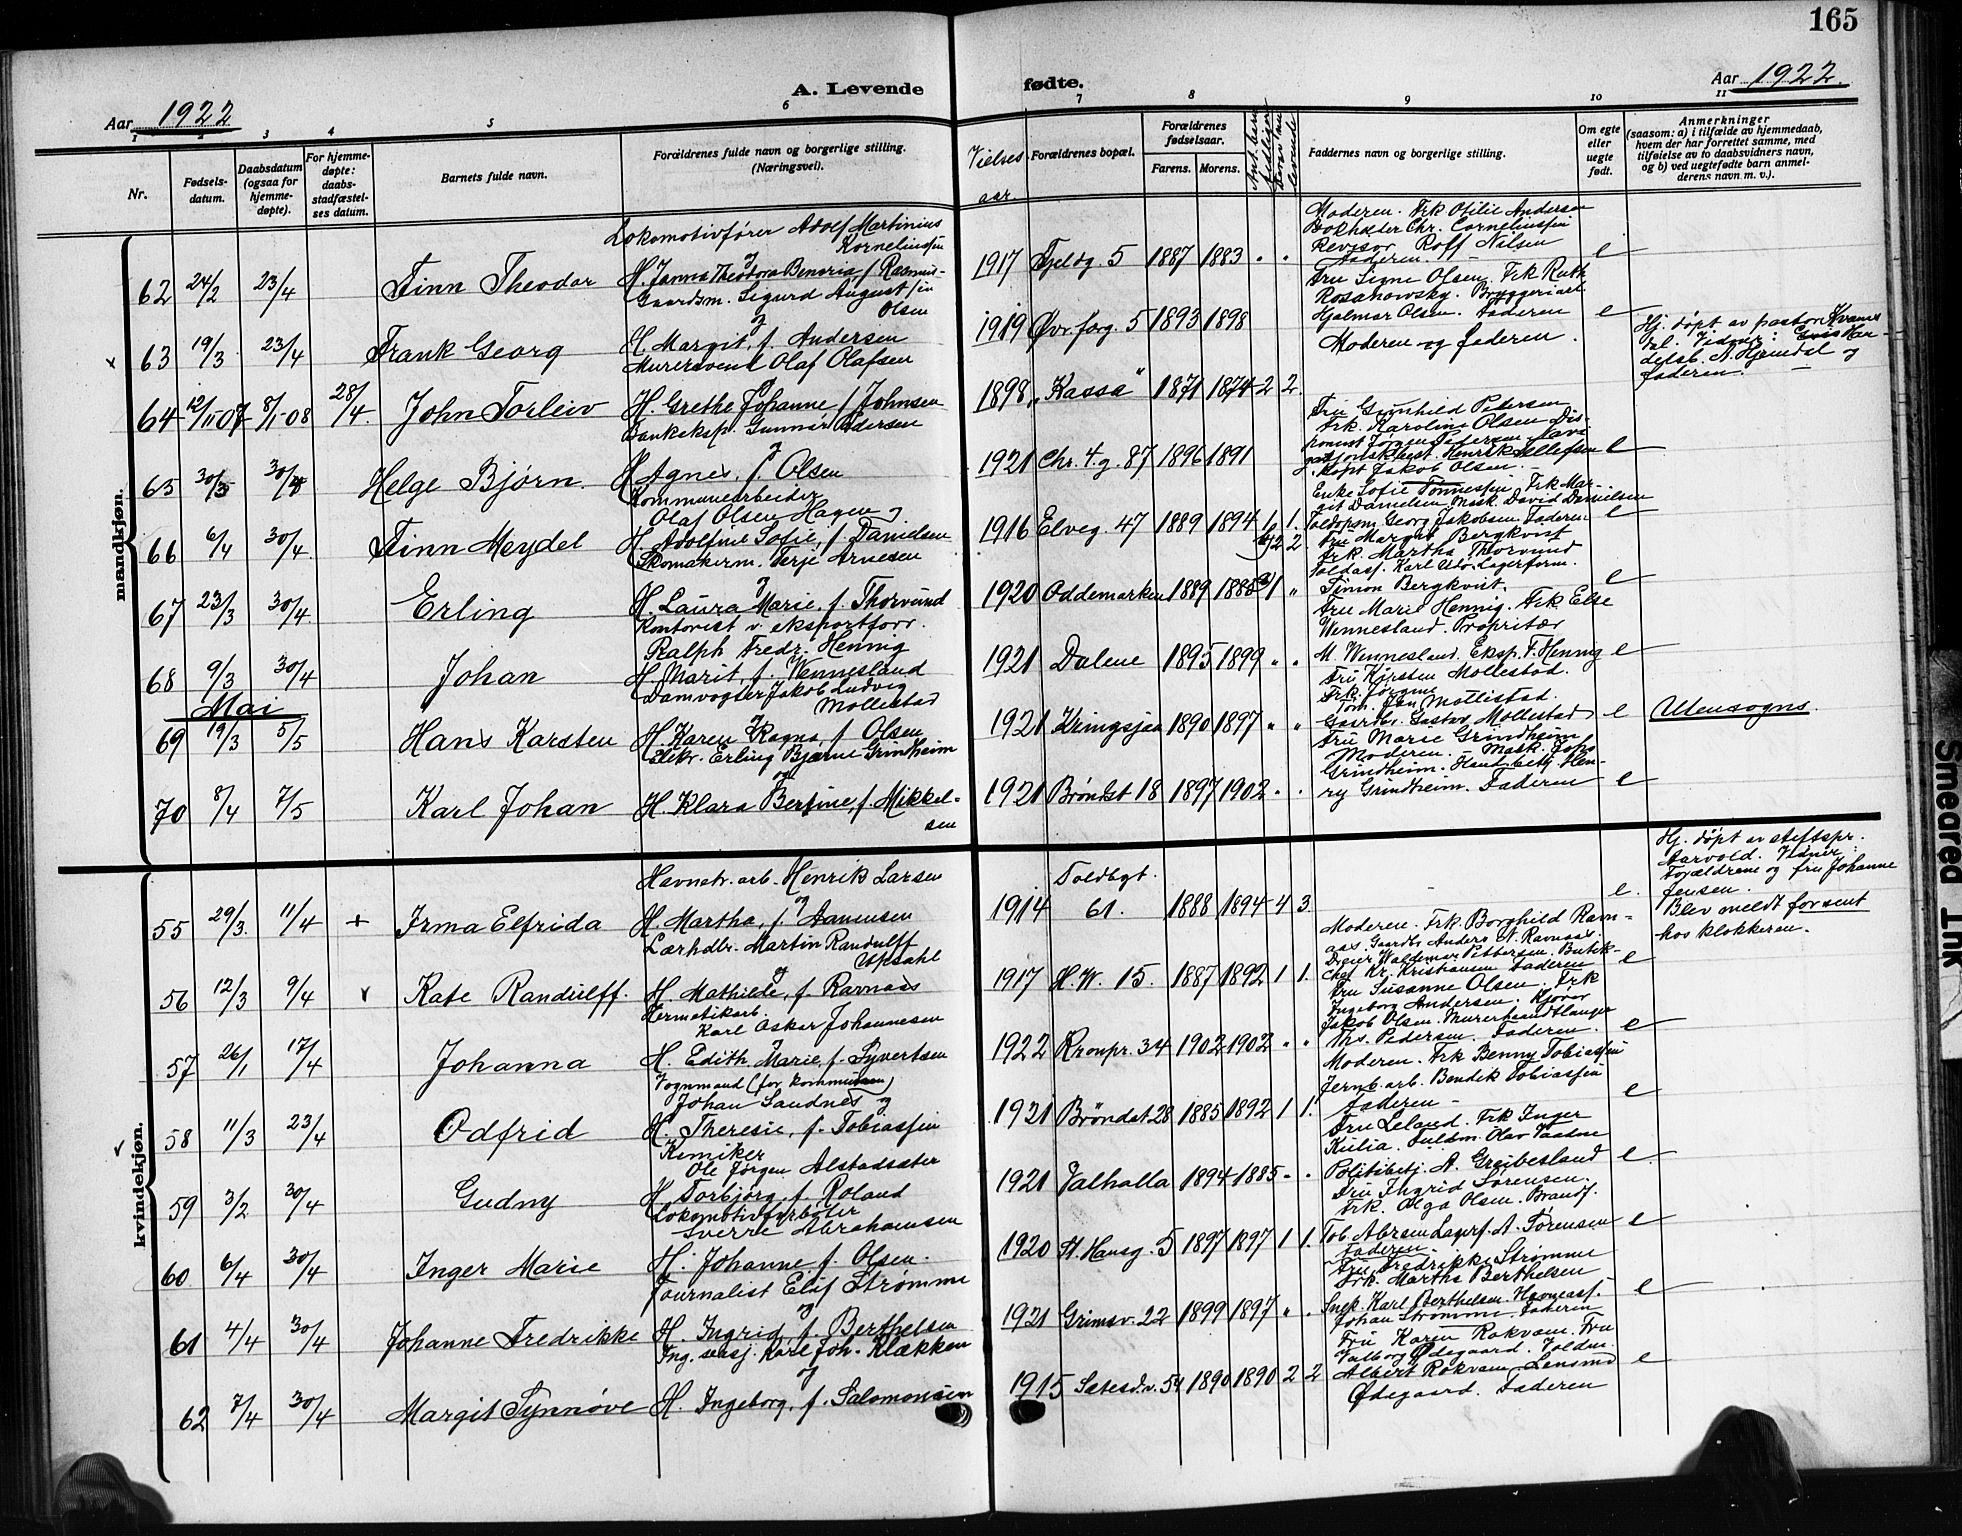 165
A. Levende fødte.
Aar 1922
Aar 1922.
1 2 3 4 5 6 7 8 9 10 11
Nr.
Fødsels-
datum.
Daabsdatum
(ogsaa for
hjemme-
døpte).
For hjemme-
døpte:
daabs-
stadfæstel-
ses datum.
Barnets fulde navn.
Forældrenes fulde navn og borgerlige stilling.
(Næringsvei).
Vielses
aar.
Forældrenes bopæl.
Forældrenes
fødselsaar.
Farens. Morens.
Faddernes navn og borgerlige stilling.
Om egte
eller
uegte
født.
Anmerkninger
(saasom: a) i tilfælde av hjemmedaab,
hvem der har forrettet samme, med
tilføielse av to daabsvidners navn,
og b) ved uegtefødte barn anmel-
derens navn m. v.).
mandkjøn.
Lokomotivfører Adolf Martinius
Kornelinssen
og
62 24/2 23/4 Finn Theodor H. Janna Theodora Benoria, f. Rasmus-
sen
1917 Fjeldg. 5 1887 1883 " "
Moderen. Frk Otilie Andersen
Bokholder Chr. Corneliussen
Revisor Rolf Nilsen
Faderen - e
Gaardsm. Sigurd August
Olsen
og
63 19/3 23/4 Frank Georg H. Margit, f. Andersen
1919 Øvr. torg. 5 1893 1898
Fru Signe Olsen. Frk Ruth
Rosanowsky. Bryggeriarb
Hjalmar Olsen. Faderen e
Murersvend Olaf Olafsen
og
64 12/11 07 8/1-08 28/4. John Torleiv H. Grethe Johanne f. Johnsen
1898 "Kassa" 1871 1874 2 2
Moderen og Faderen.
Hj. døpt av pastor Kvarnes
Vidner: Han-
delsb. N. Hjemdal og
faderen. —
Bankeksp. Gunnar Pedersen
og
65 30/3 30/4 Helge Bjørn. H. Agnes, f. Olsen
1921 Chr. 4. g. 87 1896 1891
Fru Gunhild Petersen
Frk. Karoline Olsen Dis-
ponent Jørgen Pedersen. Navi-
gasjonsklast. Henrik Ellefsen
Kapt Jakob Olsen. — e
Kommunearbeider
Olaf Olsen Hagen og
66 6/4 30/4. Finn Meydel H. Adolfine Sofie, f. Danielsen
1916 Elveg. 47 1889 1894 1 1.
Enke Sofie Tønnessen, Frk Mar-
git Danielsen Mask. David Danielsen
Toldopsm. Georg Jakobsen Faderen e
Skomakerm. Terje Arnesen
og
67 23/3 30/4. Erling H. Laura Marie, f. Thorvund
1920 Oddemarken 1889 1885 1 "
Fru Margit Bergkvist
Frk. Martha Thorvund
Toldass. Karl Ulv. Lagerform.
Simon Bergkvist. e
Kontorist v. eksportforr.
Ralph Fredr. Hennig
68 9/3 30/4 Johan H. Marit, f. Wennesland
1921 Dalene 1895 1899 " "
Fru Marie Hennig. Frk Else
Wennesland. Propritær
M. Wennesland. Eksp. F. Hennig e
Mai
Damvogter Jakob Ludvig
Mollestad
69 19/3 5/5 Hans Karsten H. Karen Ragna f. Olsen
1921 Kringsjaa 1890 1897 " "
Fru Kirsten Mollestad.
Frk. Jørgine
Tom. Jan Mollestad.
Gaardbr. Gustav Mollestad e
Utensogns.
Elektr. Erling Bjarne Grindheim
og
70 8/4 7/5 Karl Johan H. Klara Bertine, f. Mikkel-
sen
1921 Brøndst 18 1897 1902 " "
Fru Marie Grindheim
Moderen. — Mask. Johs
Grindheim. Handelsbetj. Hen-
ry Grindheim. Faderen e
kvindekjøn.
Havnetr. arb. Henrik Larsen
og
55 29/3. 11/4 + Irma Elfrida H. Martha, f. Danielsen
1914 Toldbgt. 61. 1888 1894 4 3
e.
Hj. døpt av stiftspr.
Aarvold. Vidner:
Forældrene og fru Johanne
Jensen.
Blev meldt for sent
hos klokkeren.
Lærhdlr. Martin Randulff
Upsahl
og
56 12/3 9/4 v Kate Randulff. H. Mathilde, f. Ravnaas
1917 H. W. 15. 1887 1892 1 1.
Moderen. Frk Borghild Ravn-
aas. Gaardbr Anders N. Ravnaas.
Dreier Waldemar Pettersen. Butik-
chef Kr. Kristiansen Faderen e
Hermetikarb.
Karl Oskar Johannesen
og
57 26/1 17/4 Johanna H. Edith Marie, f. Syvertsen
1922 Kronpr. 34 1902 1902 " "
Fru Susanne Olsen. Frk
Ingeborg Andersen. Kjører
Jakob Olsen. Murerhaandtlanger
Ths. Pedersen. Faderen. e
Vognmand (for kommunen)
Johan Sandnes og
58 11/3 23/4 Odfrid H. Theresie, f. Tobiassen
1921 Brøndst 28 1885 1892 1 1.
Moderen. Frk Benny Tobiassen
Jernb. arb. Bendik Tobiassen
Faderen — e
Kemiker
Ole Jørgen Alstadsæter
59 3/2 30/4 Gudny H. Torbjørg, f. Roland
1921 Valhalla 1894 1885 " "
Fru Leland. Frk Inger
Kulia. Fuldm. Olav Vaadne
Politibetj. A. Greibesland e
Lokomotivfyrbøter
Sverre Abrahamsen
60 6/4 30/4 Inger Marie H. Johanne f. Olsen.
1920 St. Hansg. 5 1897 1897 1 1.
Fru Ingrid Sørensen.
Frk. Olga Olsen. Brandf.
Tob. Abrsen Lagerf. A. Sørensen e
Faderen.
Journalist Elif Strømme
og
61 4/4 30/4 Johanne Fredrikke H. Ingrid, f. Berthelsen
1921 Grimsv. 22 1899 1897 " "
Fru Fredrikke Strømme
Frk. Martha Berthelsen
Snek. Karl Berthelsen. Havneass.
Johan Strømme Faderen e
Ing. Karl Joh. Klækken
og
62 7/4 30/4 Margit Synnøve H. Ingeborg, f. Salomonsen
1915 Setesd.v. 54 1890 1890 2 2
Fru Karen Rokvam. Fru
Valborg Ødegaard. Foldm.
Albert Rokvam Lensmd
Ødegaard. Faderen e
Smeared Ink